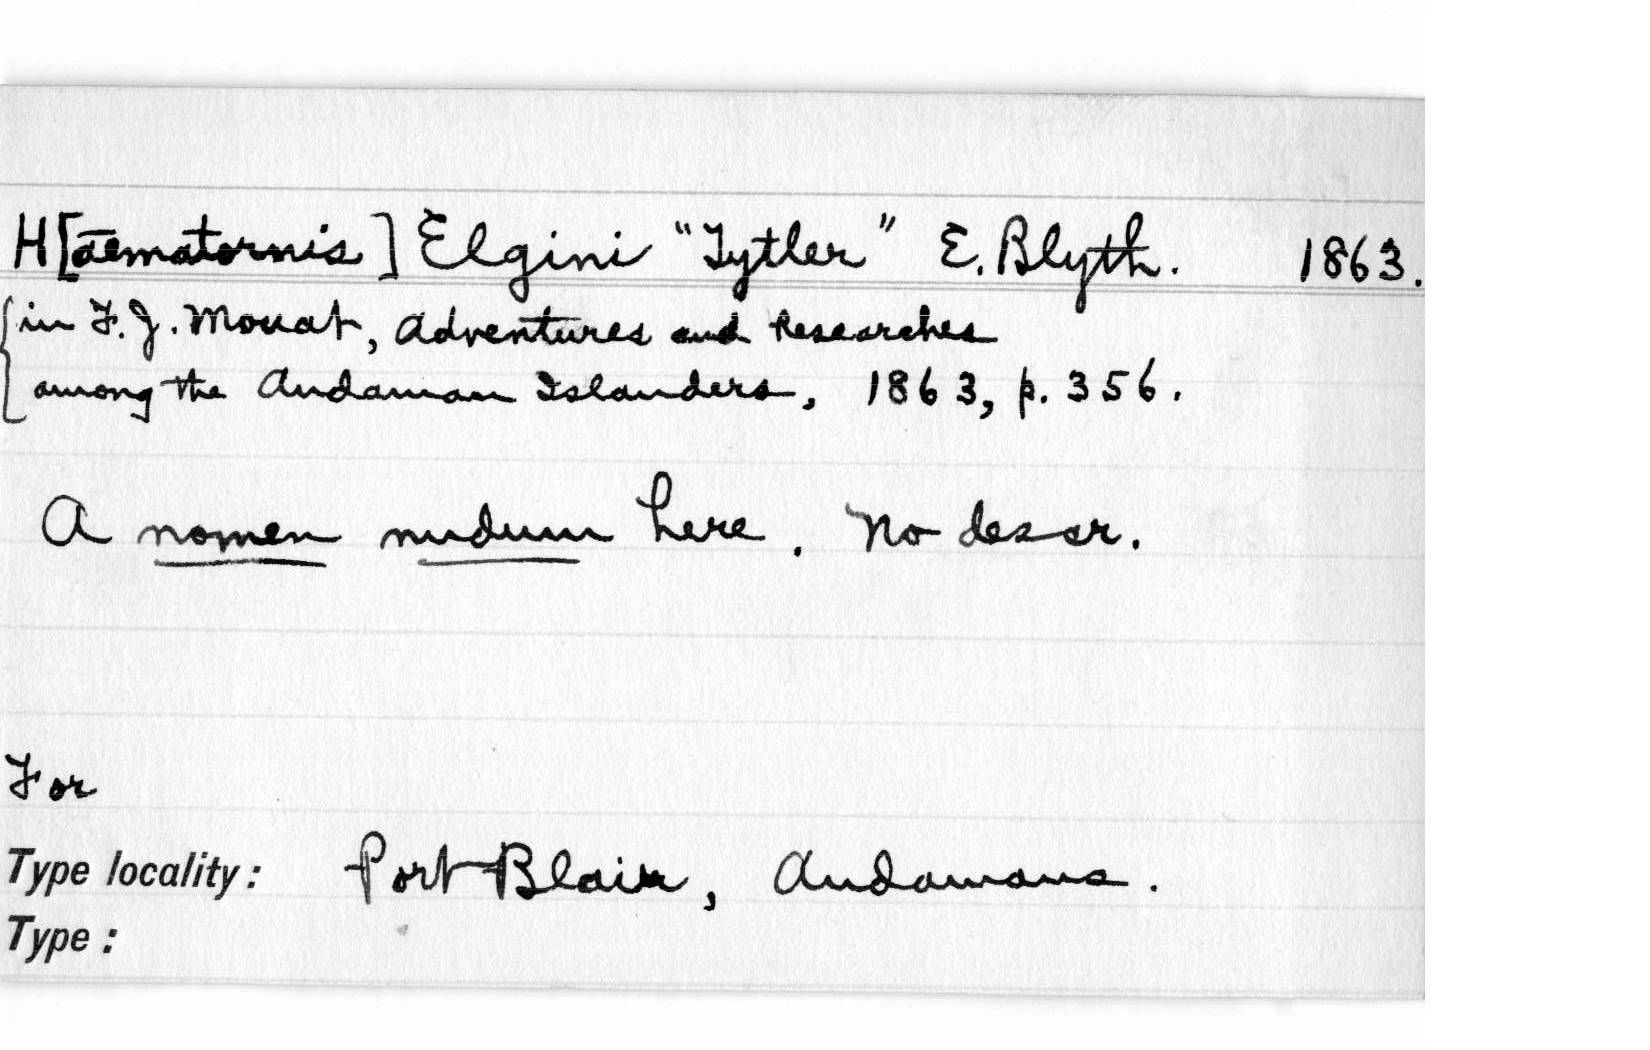 H[aematornis] Elgini "Tytler" E. Blyth. 1863.
in F. J. Mouat, Adventures and Researches
among the Andaman Islanders, 1863, p. 356.
A nomen nudum here. No descr.
For
Type locality: Port Blair, Andamans.
Type: